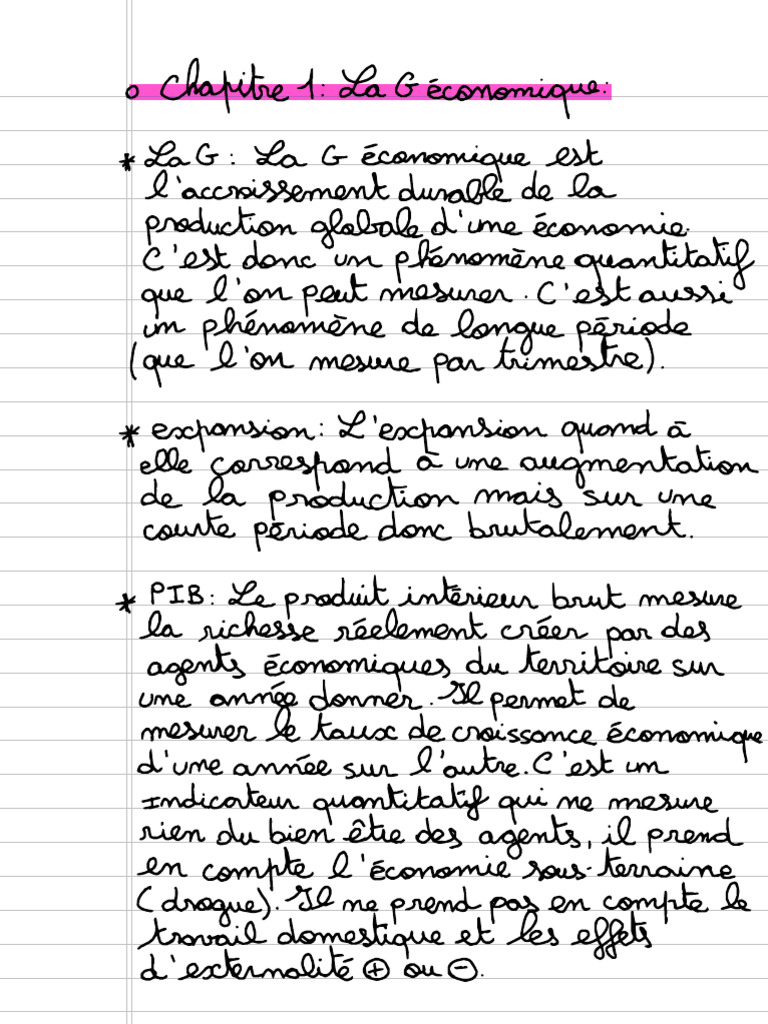 o Chapitre 1 : La G économique.
* La G : La G économique est
l'accroissement durable de la
production globale d'une économie.
C'est donc un phénomène quantitatif
que l'on peut mesurer. C'est aussi
un phénomène de longue période
(que l'on mesure par trimestre).
* expansion : L'expansion quand à
elle correspond à une augmentation
de la production mais sur une
courte période donc brutalement.
* PIB : Le produit intérieur brut mesure
la richesse réelement créer par des
agents économiques du territoire sur
une année donner. Il permet de
mesurer le taux de croissance économique
d'une année sur l'autre. C'est un
indicateur quantitatif qui ne mesure
rien du bien être des agents, il prend
en compte l'économie sous-terraine
(drogue). Il ne prend pas en compte le
travail domestique et les effets
d'externalité ⊕ ou ⊖.